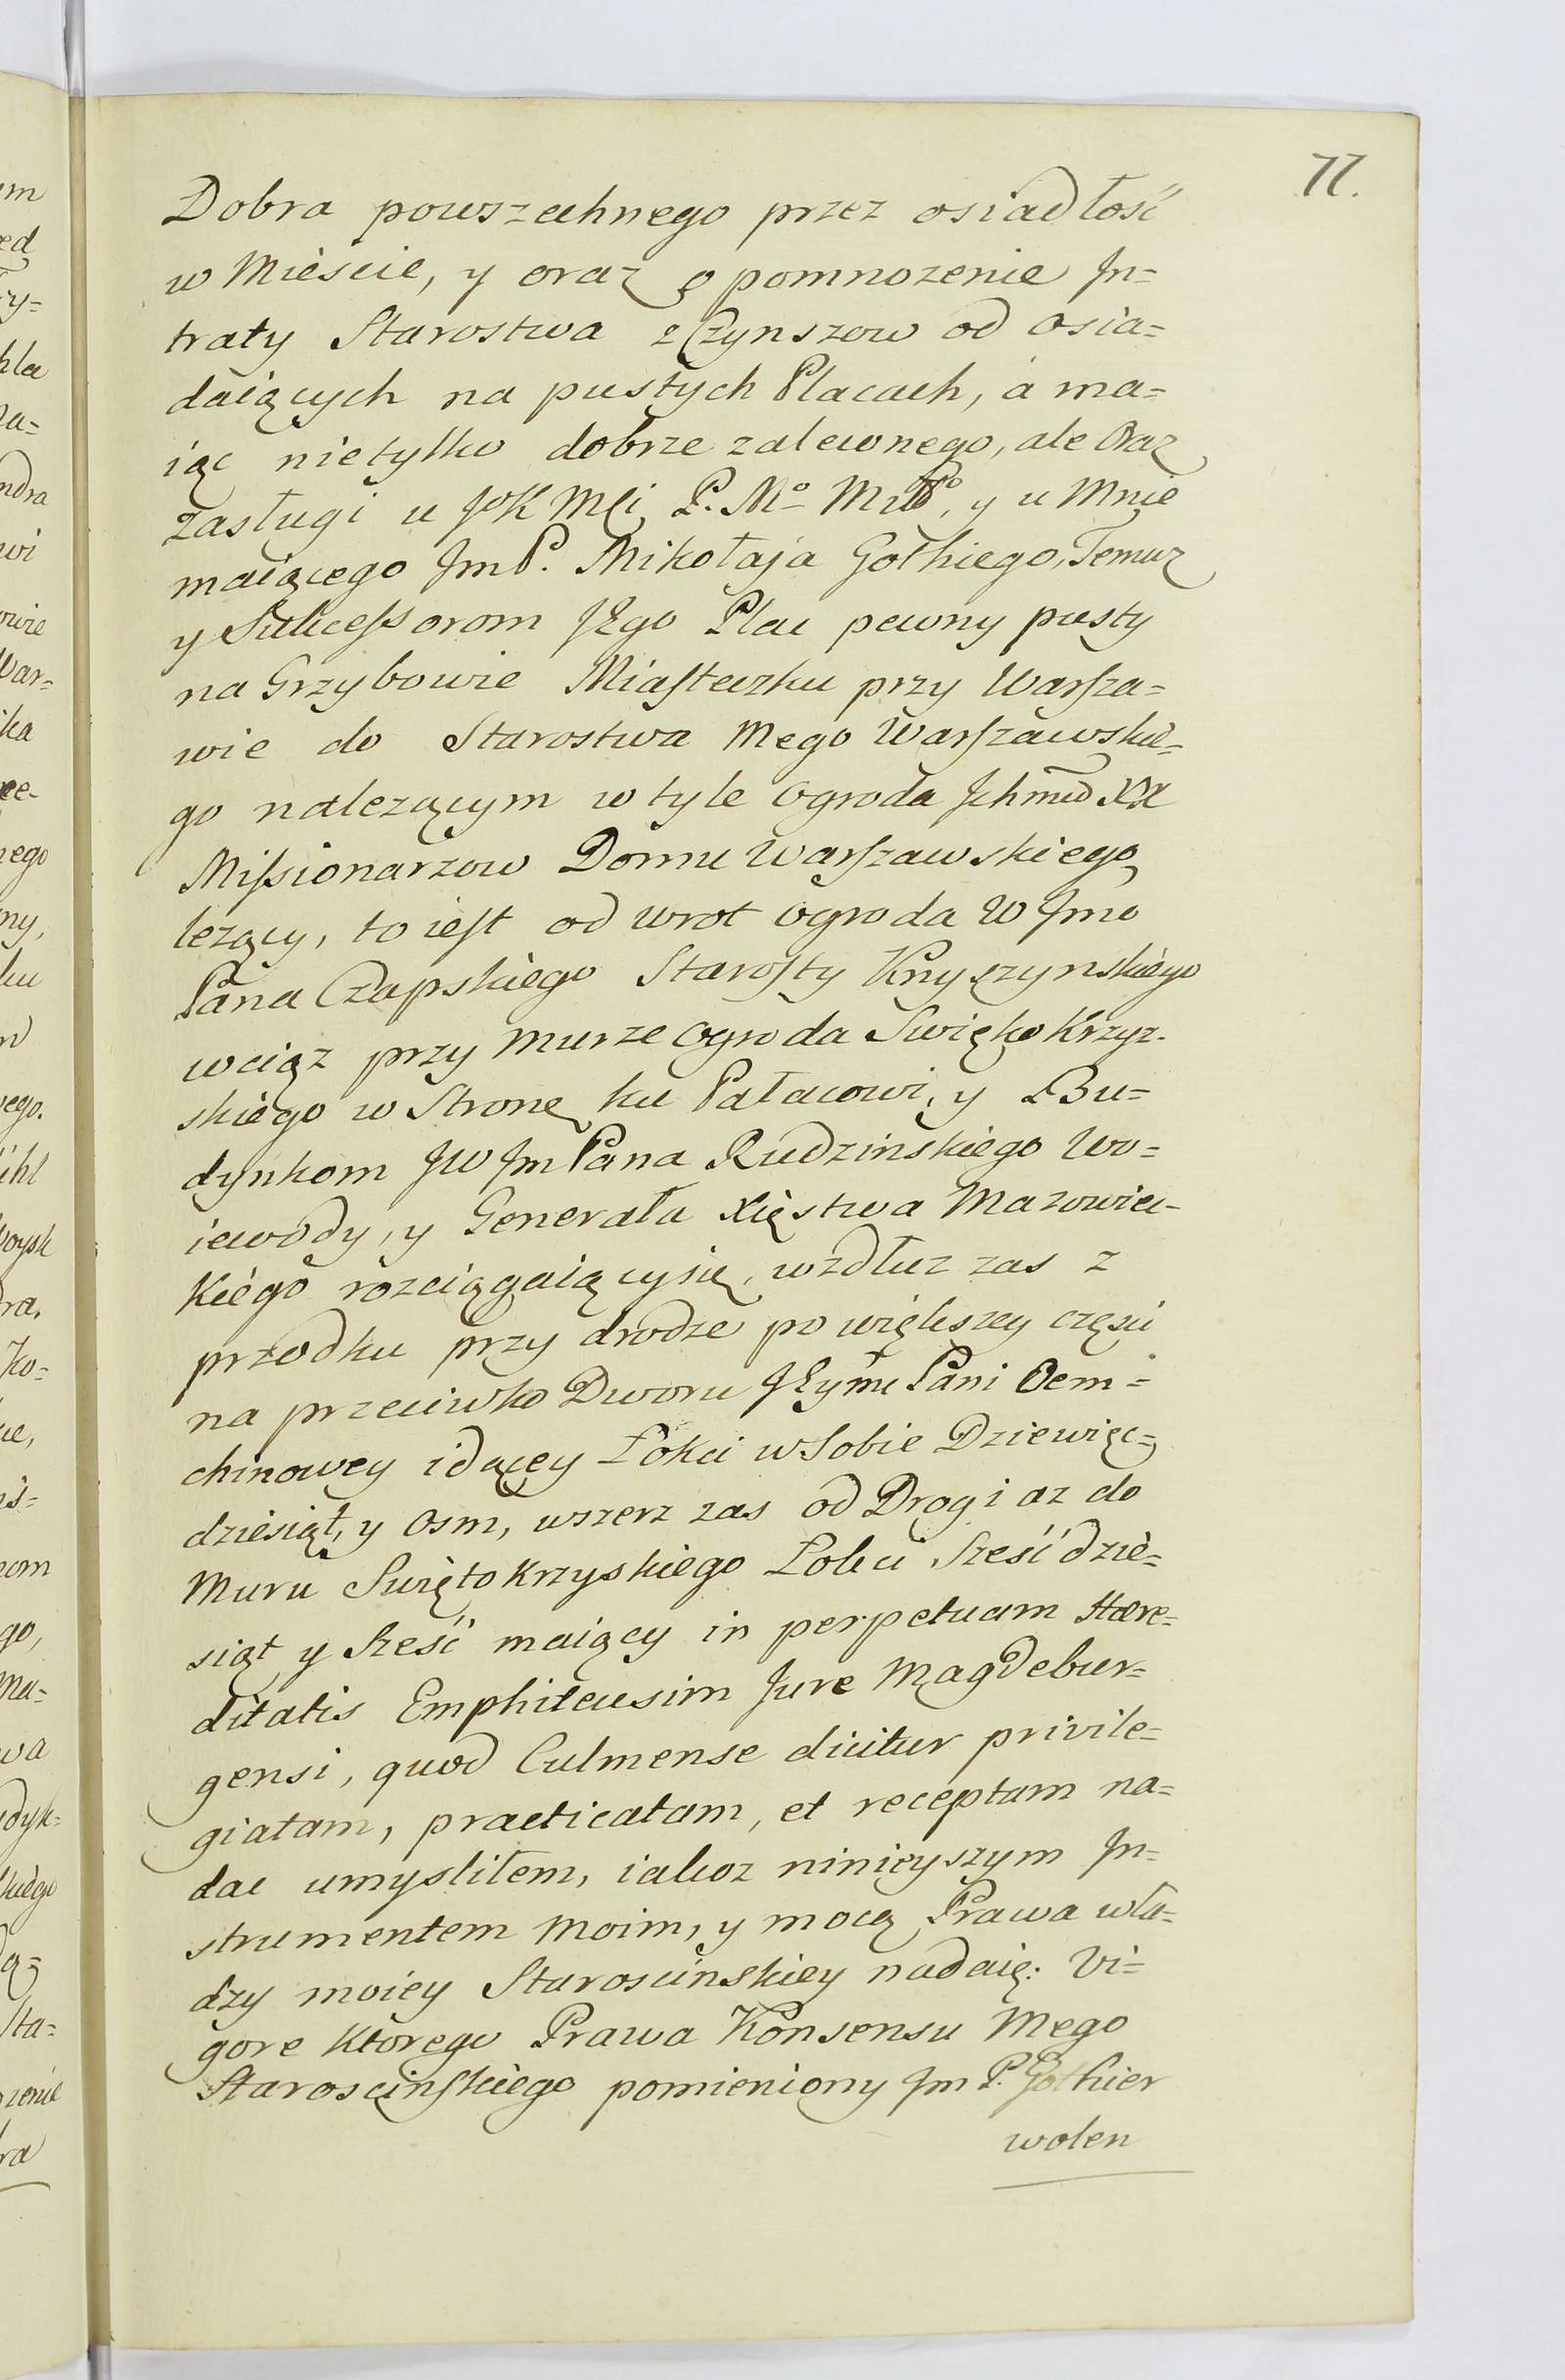 77.
Dobra powszechnego przez osiadłość
w Mieście, y oraz o pomnozenie In=
traty Starostwa z Czynszow od osia=
daiących na pustych Placach, á ma=
iąc nietylko dobrze zalecnego, ale oraz
zasługi u JoK Mci P. Mo Miło, y u Mnie
maiącego JmP. Mikołaja Gołkiego, Temuz
y Sukcessorom JEgo Plac pewny pusty
na Grzybowie Miasteczku przy Warsza=
wie do Starostwa Mego Warszawskie=
go nalezącym w tyle Ogroda Jchmcio XX
Missionarzow Domu Warszawskiego
lezący, to iest od wrot Ogroda W Jmo
Pana Czapskiego Starosty Knyszynskiego
wciąz przy murze Ogroda Swięto Krzyz-
skiego w Stronę ku Pałacowi, y Bu=
dynkom JW JmPana Rudzinskiego Wo=
iewody, y Generała Xięstwa Mazowiec-
kiego rozciągaiącysię, wzdłuz zas z
przodku przy drodze po większey części
na przeciwko Dworu JEymc Pani Oem=
chinowey idącey Łokci w Sobie Dziewięc=
dziesiąt, y Osm, wszerz zas od Drogi az do
Muru Swięto Krzyskiego Łokci Sześć dzie=
siąt y Sześć maiący in perpetuam Hære=
ditatis Emphiteusim Jure Magdebur=
gensi, quod Culmense dicitur privile=
giatam, practicatam, et receptam na=
dac umyslilem, iakoz ninieyszym In=
strumentem moim, y mocą Prawa wła=
dzy moiey Staroscinskiey nadaię: Vi=
gore ktorego Prawa Konsensu Mego
Staroscinskiego pomieniony Jm P. Gołkier
wolen